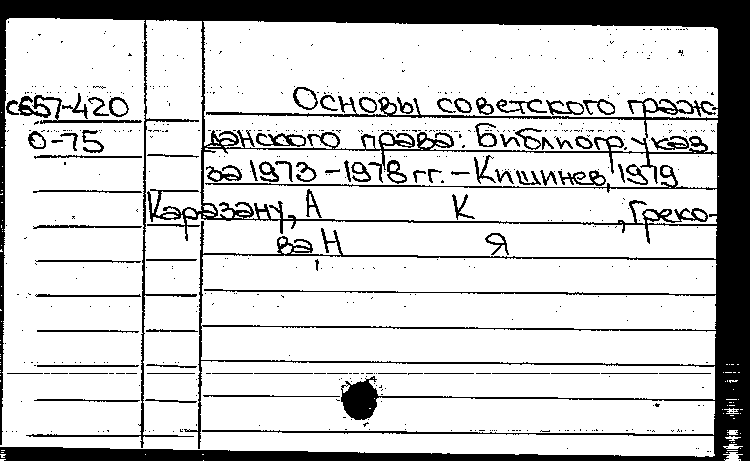 сб57-420 Основы советского граж-
О-75 данского права: Библиогр. указ.
за 1973-1978 гг. - Кишинев, 1979
Каразану, А К , Греко-
ва, Н Я